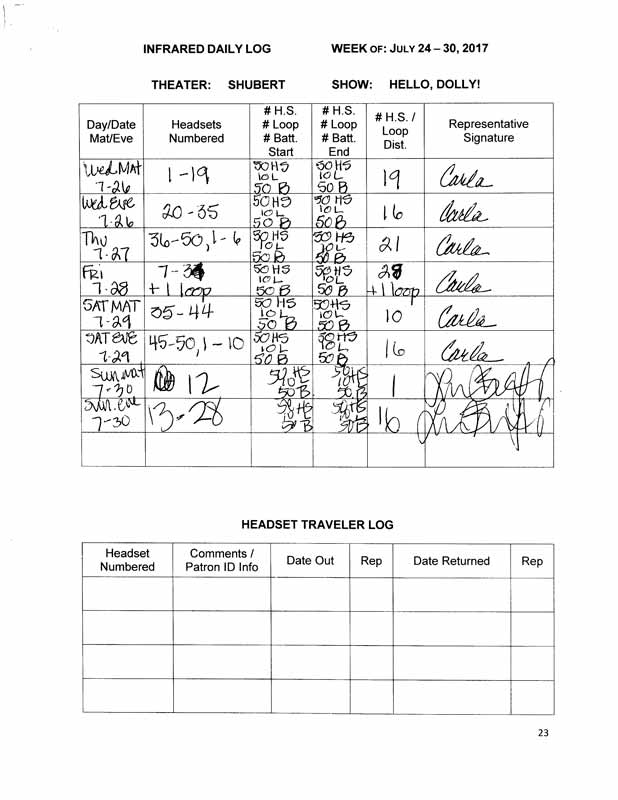 INFRARED DAILY LOG WEEK OF: JULY 24 – 30, 2017
THEATER: SHUBERT SHOW: HELLO, DOLLY!
Day/Date Mat/Eve Headsets Numbered # H.S. # Loop # Batt. Start # H.S. # Loop # Batt. End # H.S. / Loop Dist. Representative Signature
Wed MAT 7-26 1-19 50 HS 10 L 50 B 50 HS 10 L 50 B 19 Carla
Wed Eve 7-26 20-35 50 HS 10 L 50 B 50 HS 10 L 50 B 16 Carla
Thu 7-27 36-50, 1-6 50 HS 10 L 50 B 50 HS 10 L 50 B 21 Carla
FRI 7-28 7-34 +1 loop 50 HS 10 L 50 B 50 HS 10 L 50 B 28 +1 loop Carla
SAT MAT 7-29 35-44 50 HS 10 L 50 B 50 HS 10 L 50 B 10 Carla
SAT EVE 7-29 45-50, 1-10 50 HS 10 L 50 B 50 HS 10 L 50 B 16 Carla
Sun mat 7-30 12 50 HS 10 L 50 B 50 HS 10 L 50 B 1
Sun. eve 7-30 13-28 50 HS 10 L 50 B 50 HS 10 L 50 B 16
HEADSET TRAVELER LOG
Headset Numbered Comments / Patron ID Info Date Out Rep Date Returned Rep
23